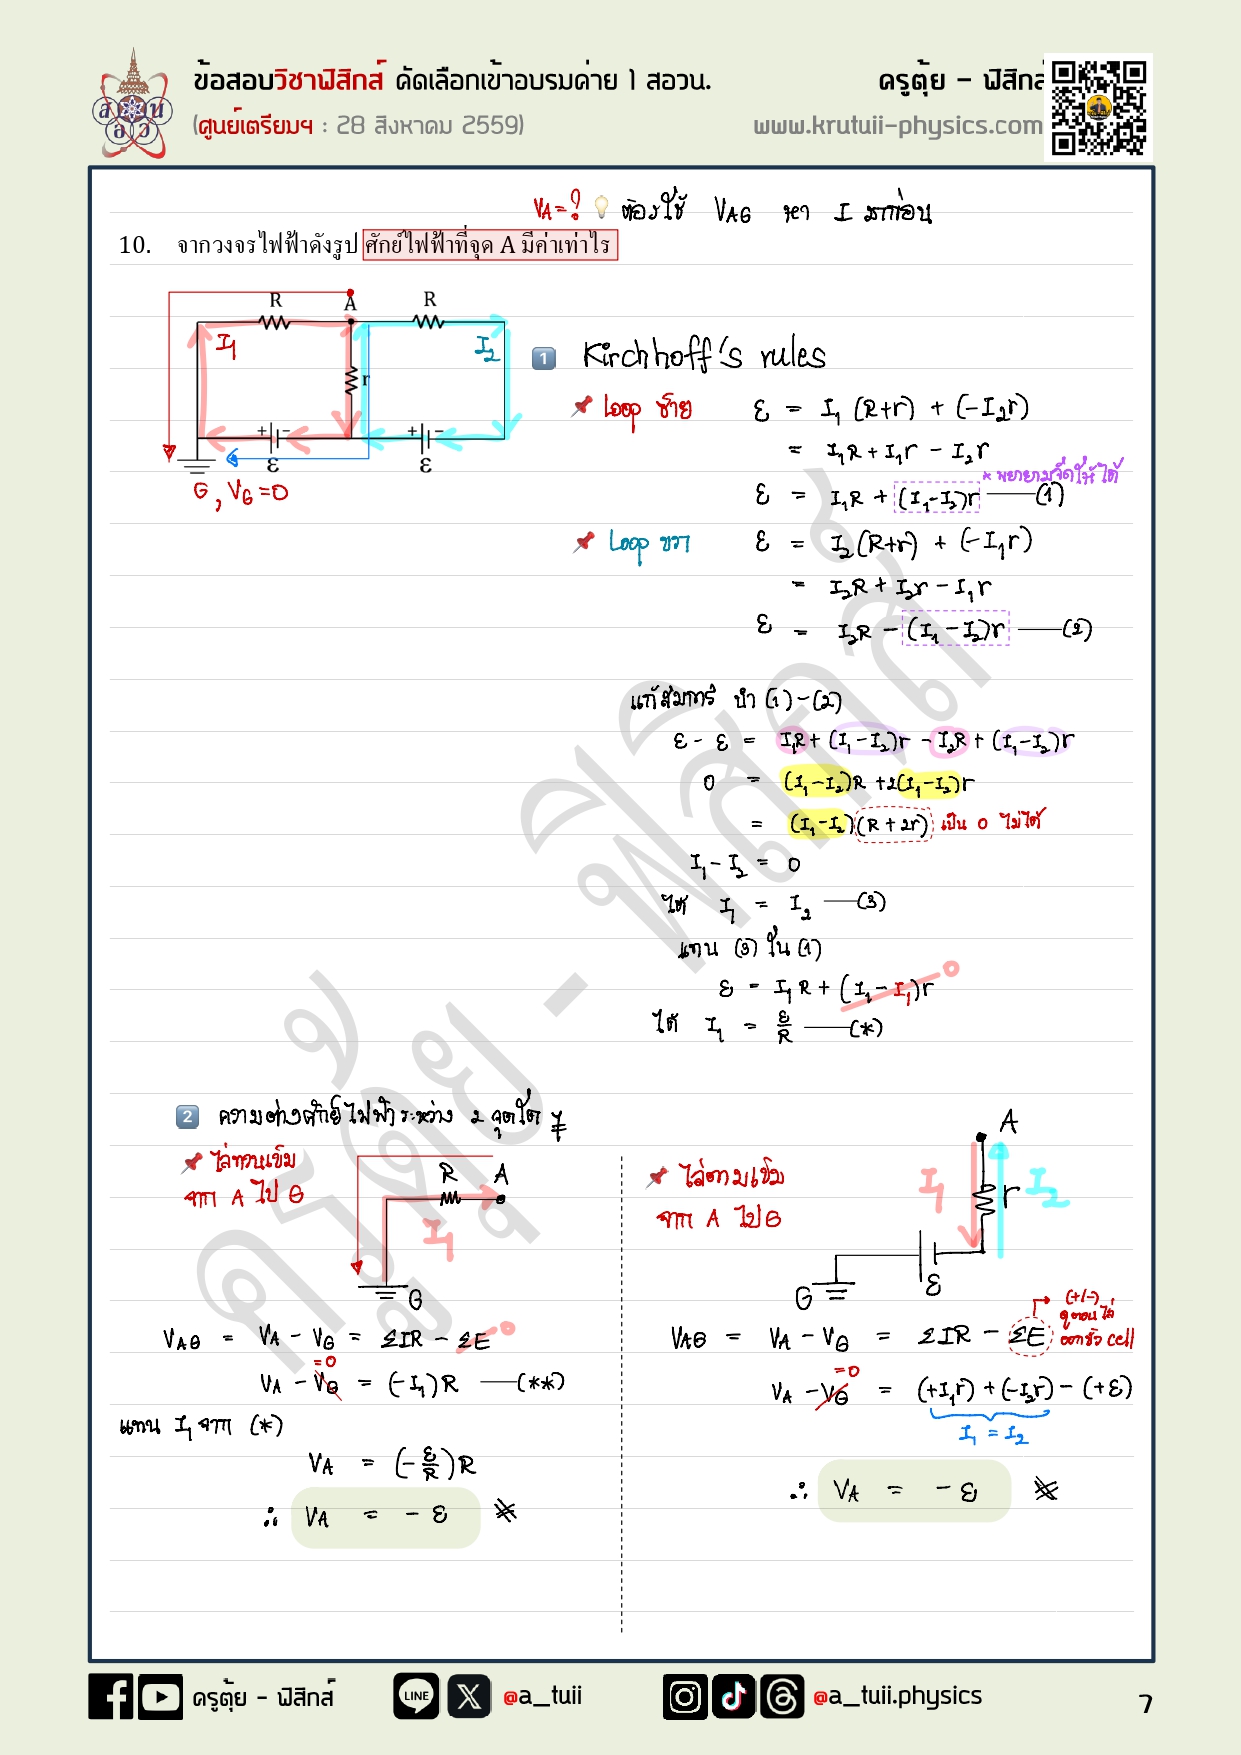 ข้อสอบวิชาฟิสิกส์ คัดเลือกเข้าอบรมค่าย 1 สอวน.
ครูตุ้ย - ฟิสิกส์
(ศูนย์เตรียมฯ : 28 สิงหาคม 2559)
www.krutuii-physics.com
V_A = ? 💡 ต้องใช้ V_AG หา I มาก่อน
10. จากวงจรไฟฟ้าดังรูป ศักย์ไฟฟ้าที่จุด A มีค่าเท่าไร
R A R
I₁ I₂
r
+ - + -
ε ε
G, V_G = 0
1 Kirchhoff's rules
📌 loop ซ้าย ε = I₁(R+r) + (-I₂r)
= I₁R + I₁r - I₂r
* พยายามจัดให้ได้
ε = I₁R + (I₁-I₂)r —(1)
📌 Loop ขวา ε = I₂(R+r) + (-I₁r)
= I₂R + I₂r - I₁r
ε = I₂R - (I₁-I₂)r —(2)
แก้สมการ นำ (1)-(2)
ε - ε = I₁R + (I₁-I₂)r - I₂R + (I₁-I₂)r
0 = (I₁-I₂)R + 2(I₁-I₂)r
= (I₁-I₂)(R+2r) เป็น 0 ไม่ได้
I₁ - I₂ = 0
ได้ I₁ = I₂ —(3)
แทน (3) ใน (1)
ε = I₁R + (I₁-I₁)r 0
ได้ I₁ = ε/R —(*)
2 ความต่างศักย์ไฟฟ้าระหว่าง 2 จุดใด ๆ
📌 ไล่ทวนเข็ม
จาก A ไป G
R A
I₁
G
V_AG = V_A - V_G = ΣIR - ΣE 0
= 0
V_A - V_G = (-I₁)R —(**)
แทน I₁ จาก (*)
V_A = (-ε/R)R
∴ V_A = -ε
📌 ไล่ตามเข็ม
จาก A ไป G
A
I₁ r I₂
G ε
(+/-)
ดูตอนไล่
ออกขั้ว cell
V_AG = V_A - V_G = ΣIR - ΣE
= 0
V_A - V_G = (+I₁r) + (-I₂r) - (+ε)
I₁ = I₂
∴ V_A = -ε
ครูตุ้ย - ฟิสิกส์
LINE
@a_tuii
@a_tuii.physics
7
ครูตุ้ย - ฟิสิกส์